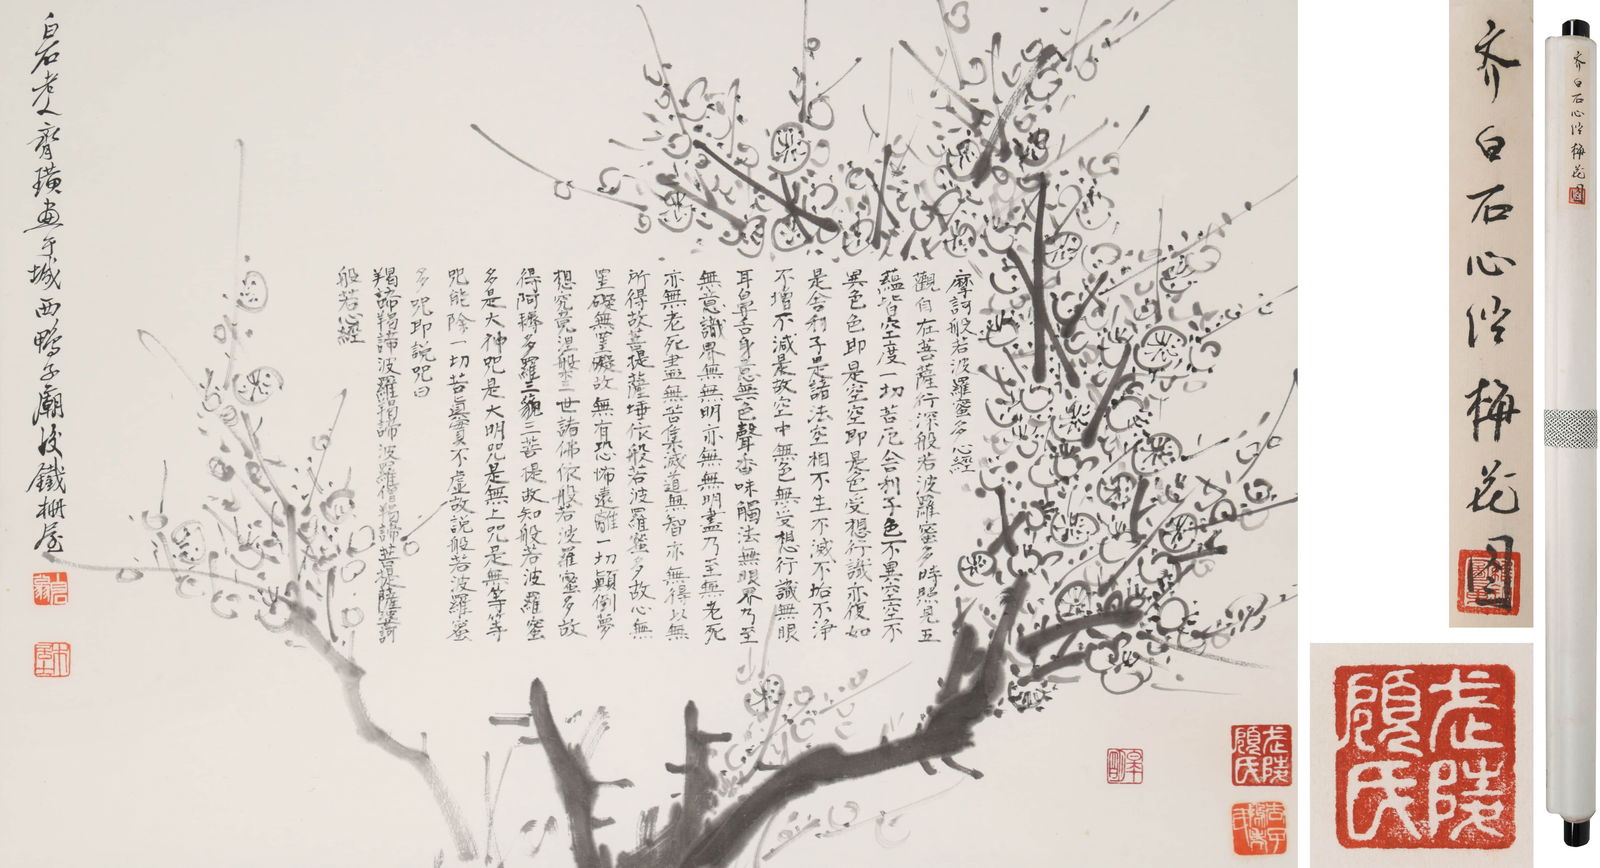 摩訶般若波羅蜜多心經
觀自在菩薩行深般若波羅蜜多時照見五
蘊皆空度一切苦厄舍利子色不異空空不
異色色即是空空即是色受想行識亦復如
是舍利子是諸法空相不生不滅不垢不淨
不增不減是故空中無色無受想行識無眼
耳鼻舌身意無色聲香味觸法無眼界乃至
無意識界無無明亦無無明盡乃至無老死
亦無老死盡無苦集滅道無智亦無得以無
所得故菩提薩埵依般若波羅蜜多故心無
罣礙無罣礙故無有恐怖遠離一切顛倒夢
想究竟涅槃三世諸佛依般若波羅蜜多故
得阿耨多羅三藐三菩提故知般若波羅蜜
多是大神咒是大明咒是無上咒是無等等
咒能除一切苦真實不虛故說般若波羅蜜
多咒即說咒曰
羯諦羯諦波羅羯諦波羅僧羯諦菩提薩婆訶
般若心經
白石老人齊璜畫于城西鴨子廟後鐵柵屋
武陵
顧氏
齐白石心经梅花图
齐白石心经梅花图
武陵
顧氏